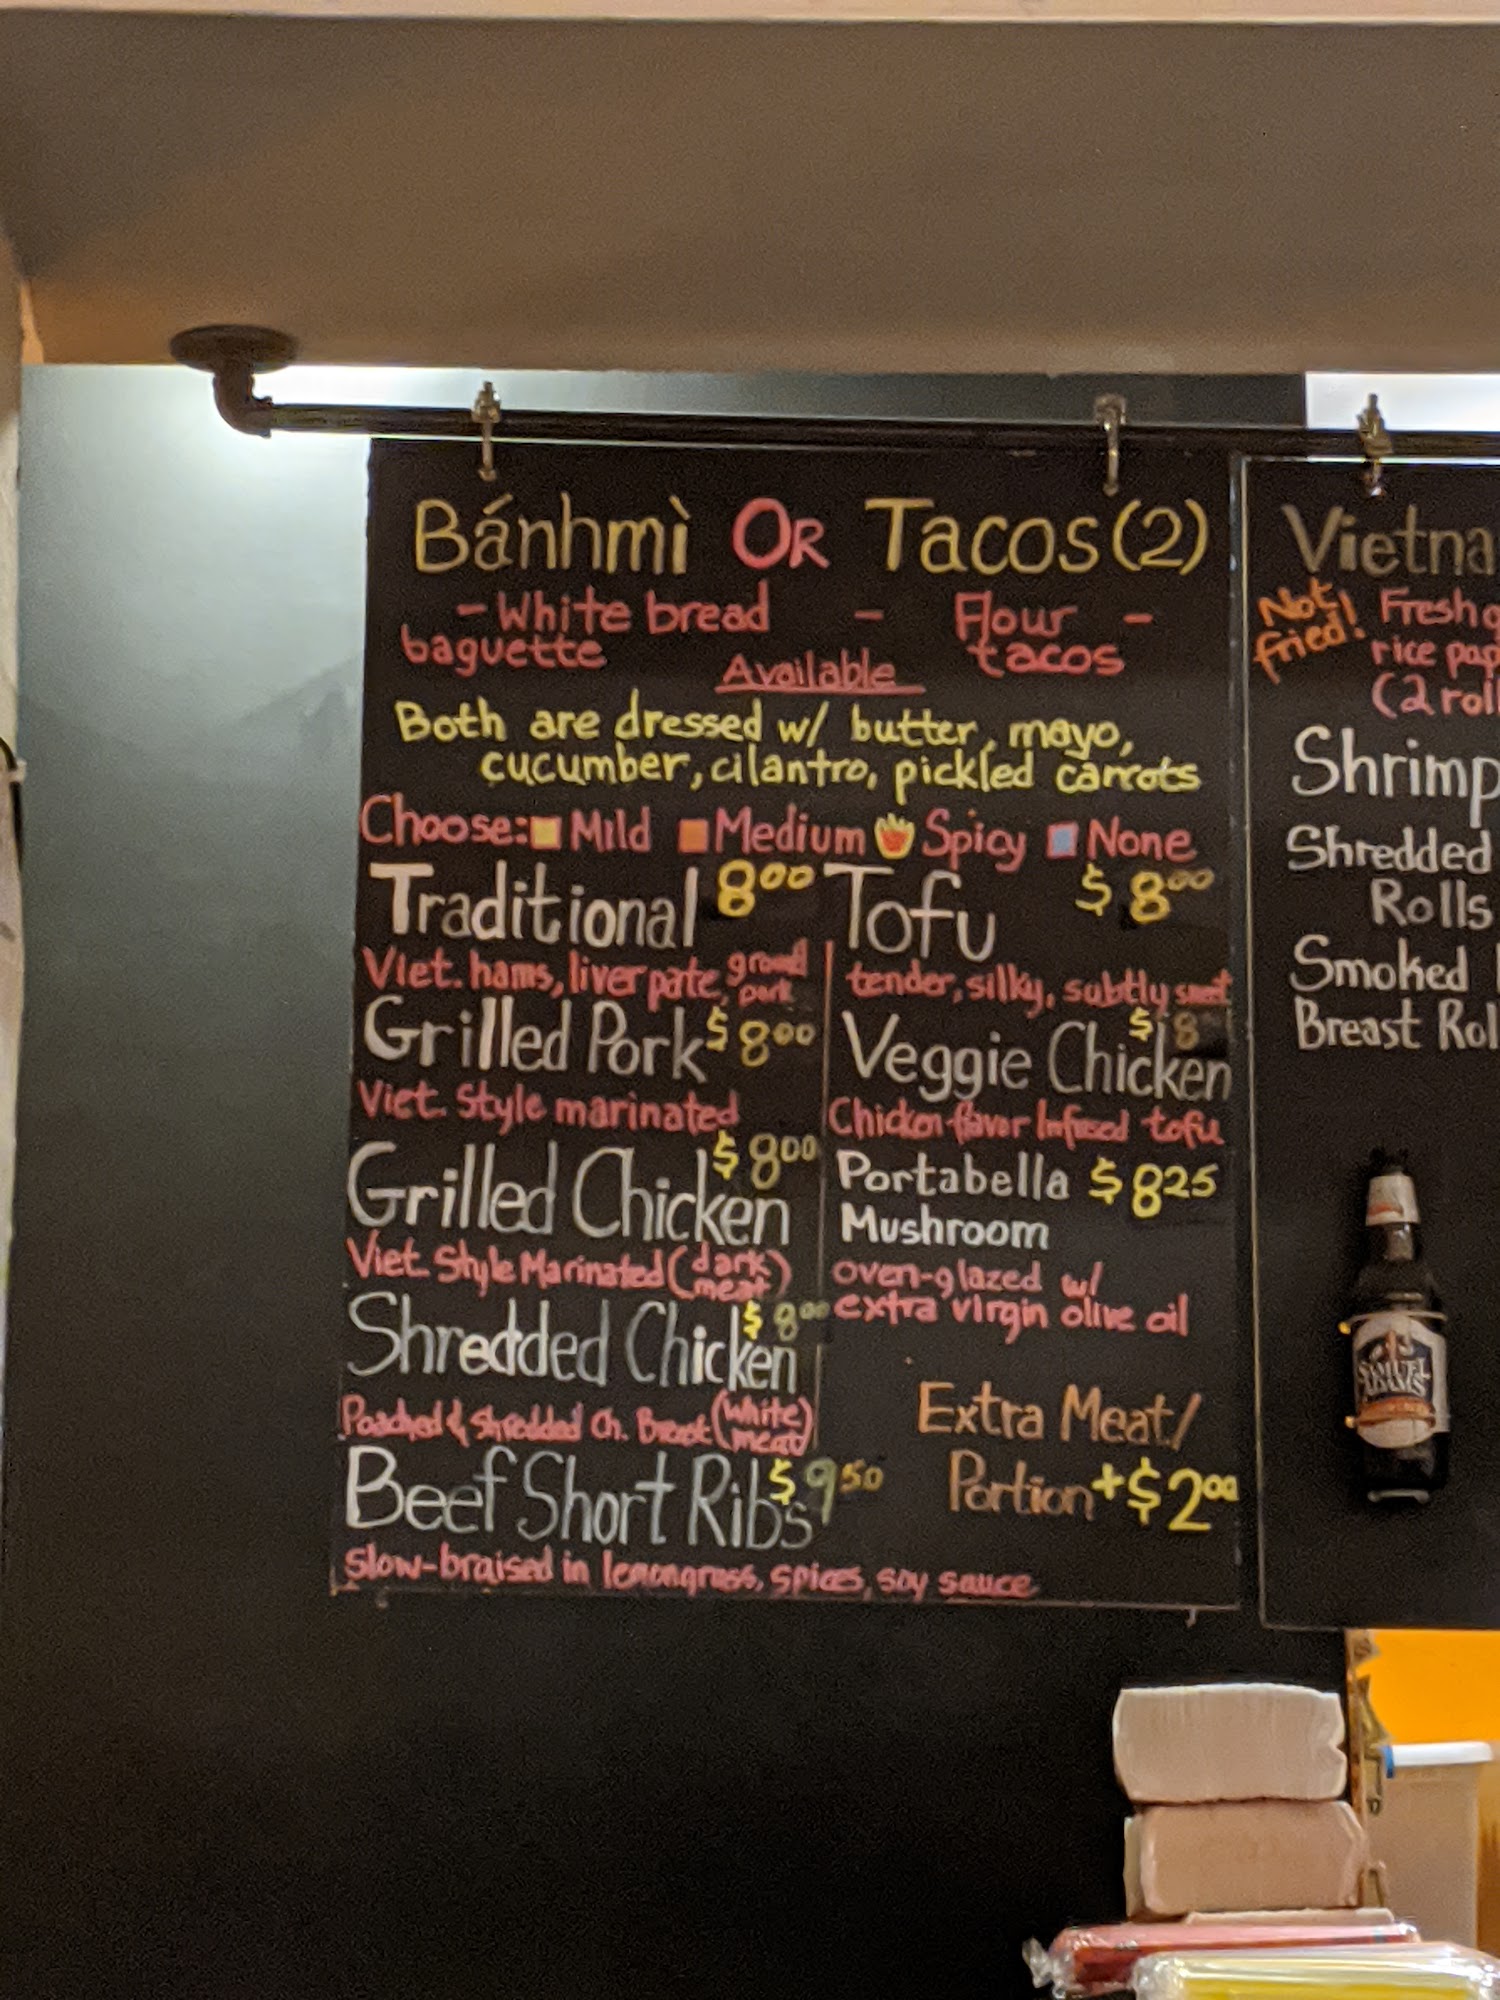 Bánhmì OR Tacos (2)
- White bread - Flour -
baguette tacos
Available
Both are dressed w/ butter, mayo,
cucumber, cilantro, pickled carrots
Choose: Mild Medium Spicy None
Traditional 8⁰⁰
Viet. hams, liver pate, ground
pork
Grilled Pork $8⁰⁰
Viet. Style marinated
Grilled Chicken $8⁰⁰
Viet. Style Marinated (dark
meat)
Shredded Chicken $8⁰⁰
Poached & Shredded Ch. Breast (white
meat)
Beef Short Ribs $9⁵⁰
Slow-braised in lemongrass, spices, soy sauce
Tofu $8⁰⁰
tender, silky, subtly sweet
Veggie Chicken $8
Chicken flavor Infused tofu
Portabella $8²⁵
Mushroom
oven-glazed w/
extra virgin olive oil
Extra Meat/
Portion +$2⁰⁰
Vietna
Not
fried!
Fresh
rice pap
(2 roll
Shrimp
Shredded
Rolls
Smoked
Breast Rol
SAMUEL
ADAMS